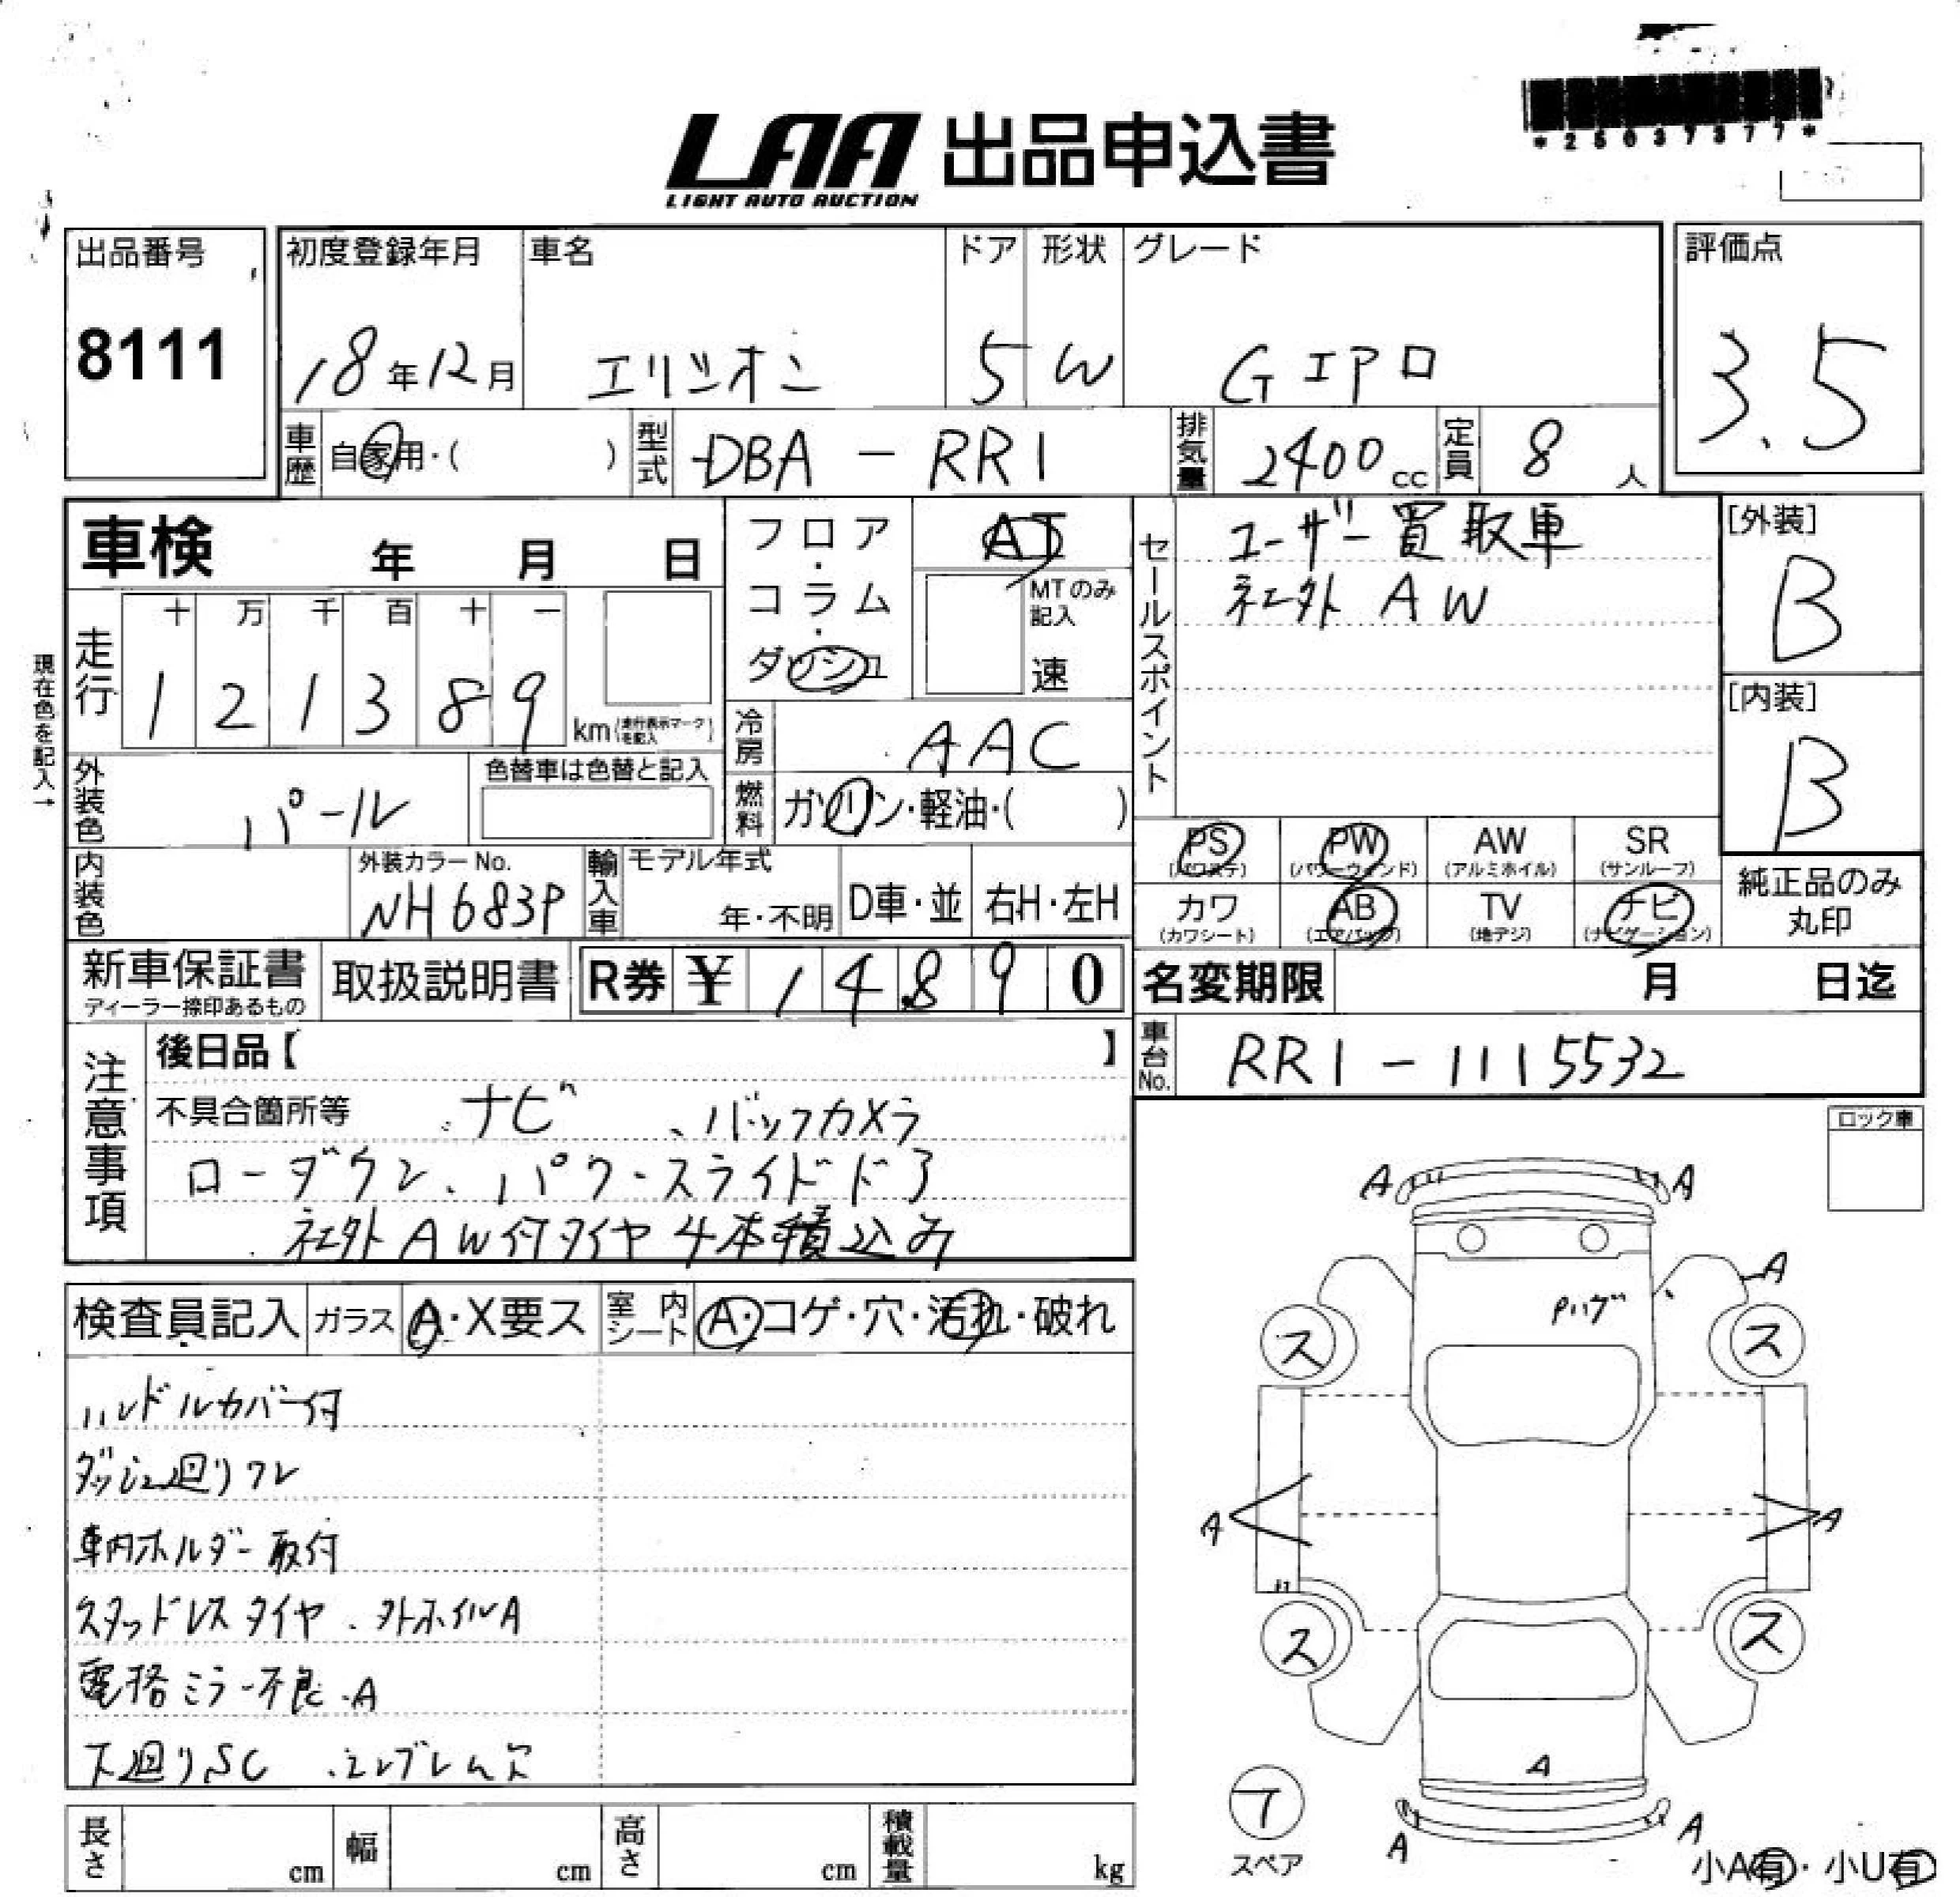 *25037377*
LAA 出品申込書
LIGHT AUTO AUCTION
出品番号 8111
初度登録年月 18年12月
車名 エリシオン
ドア 5
形状 W
グレード Gエアロ
評価点 3.5
車歴 自家用・( )
型式 DBA-RR1
排気量 2400cc
定員 8人
車検 年 月 日
フロア・コラム・ダッシュ
AT
MTのみ記入 速
セールスポイント
ユーザー買取車
社外AW
[外装] B
[内装] B
現在色を記入→
走行 十 万 千 百 十 一
1 2 1 3 8 9 km(走行表示マークを記入)
冷房 AAC
外装色 パール
色替車は色替と記入
燃料 ガソリン・軽油・( )
内装色
外装カラーNo. NH683P
輸入車 モデル年式 年・不明 D車・並 右H・左H
PS (パワステ) PW (パワーウィンド) AW (アルミホイル) SR (サンルーフ)
カワ (カワシート) AB (エアバッグ) TV (地デジ) ナビ (ナビゲーション)
純正品のみ丸印
新車保証書 ディーラー捺印あるもの
取扱説明書
R券 ¥ 14890
名変期限 月 日迄
車台No. RR1-1115532
注意事項
後日品【 】
不具合箇所等 ナビ、バックカメラ
ローダウン、パワースライドドア
社外AW付タイヤ4本積込み
ロック車
検査員記入 ガラス A・X要ス 室内シート A・コゲ・穴・汚れ・破れ
ハンドルカバー付
ダッシュ廻りワレ
車内ホルダー取付
スタッドレスタイヤ、外ホイルA
電格ミラー不良、A
下廻りSC、エンブレム欠
A A
A
Pハゲ
ス ス
A A
ス ス
A
A A
スペア
小A有・小U有
長さ cm 幅 cm 高さ cm 積載量 kg